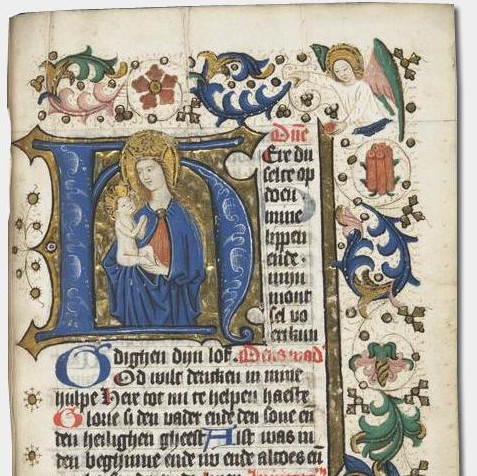 Dne
HEre du
selte op
doen
mine
lippen
ende
mijn
mont
sel vo
ertkun
dighen dijn lof. Deus in ad
God wilt dencken in mine
hulpe Here tot mi te helpen haeste
Glorie si den vader ende den sone en
den heilighen gheest Alst was in
den beghinne ende nv ende altoes en